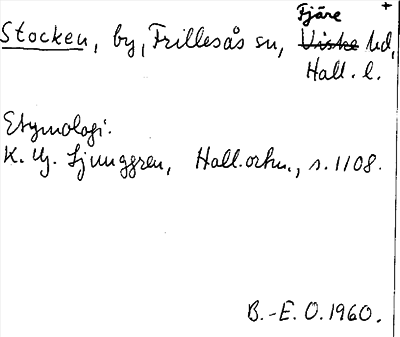 Fjäre +
Stocken, by, Frillesås sn, Viske hd,
Hall. l.
Etymologi:
K. G. Ljunggren, Hall. ortn., s. 1108.
B.-E. O. 1960.